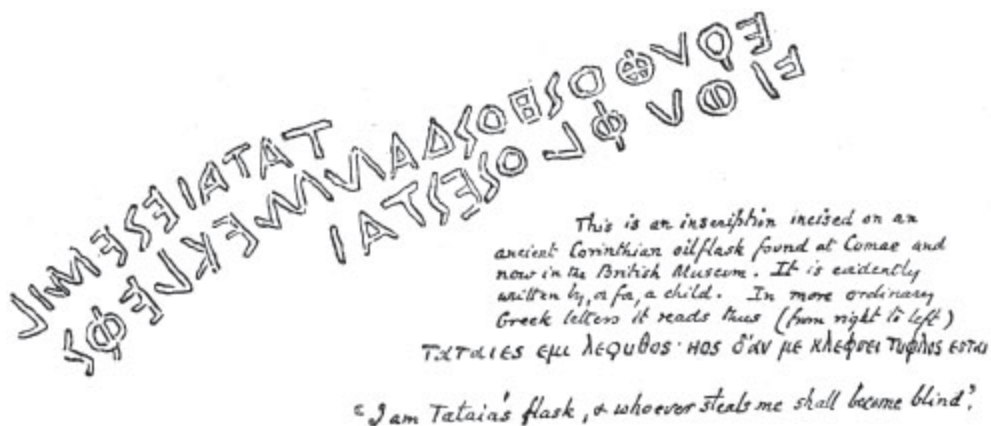 ΤΑΤΑΙΕΣΕΜΙΛ
ΕϘVΘΟΣΗΟΣΔΑΝΜΕΚΛΕΦΣ
ΕΙΘVΦΛΟΣΕΣΤΑΙ
This is an inscription incised on an
ancient Corinthian oilflask found at Cumae and
now in the British Museum. It is evidently
written by, or for, a child. In more ordinary
Greek letters it reads thus (from right to left)
ΤαΤαΙΕS εμι λεϙυθος· ΗΟS δ'άν με κλεφσει Τυφλος εσται
"I am Tataia's flask, & whoever steals me shall become blind".